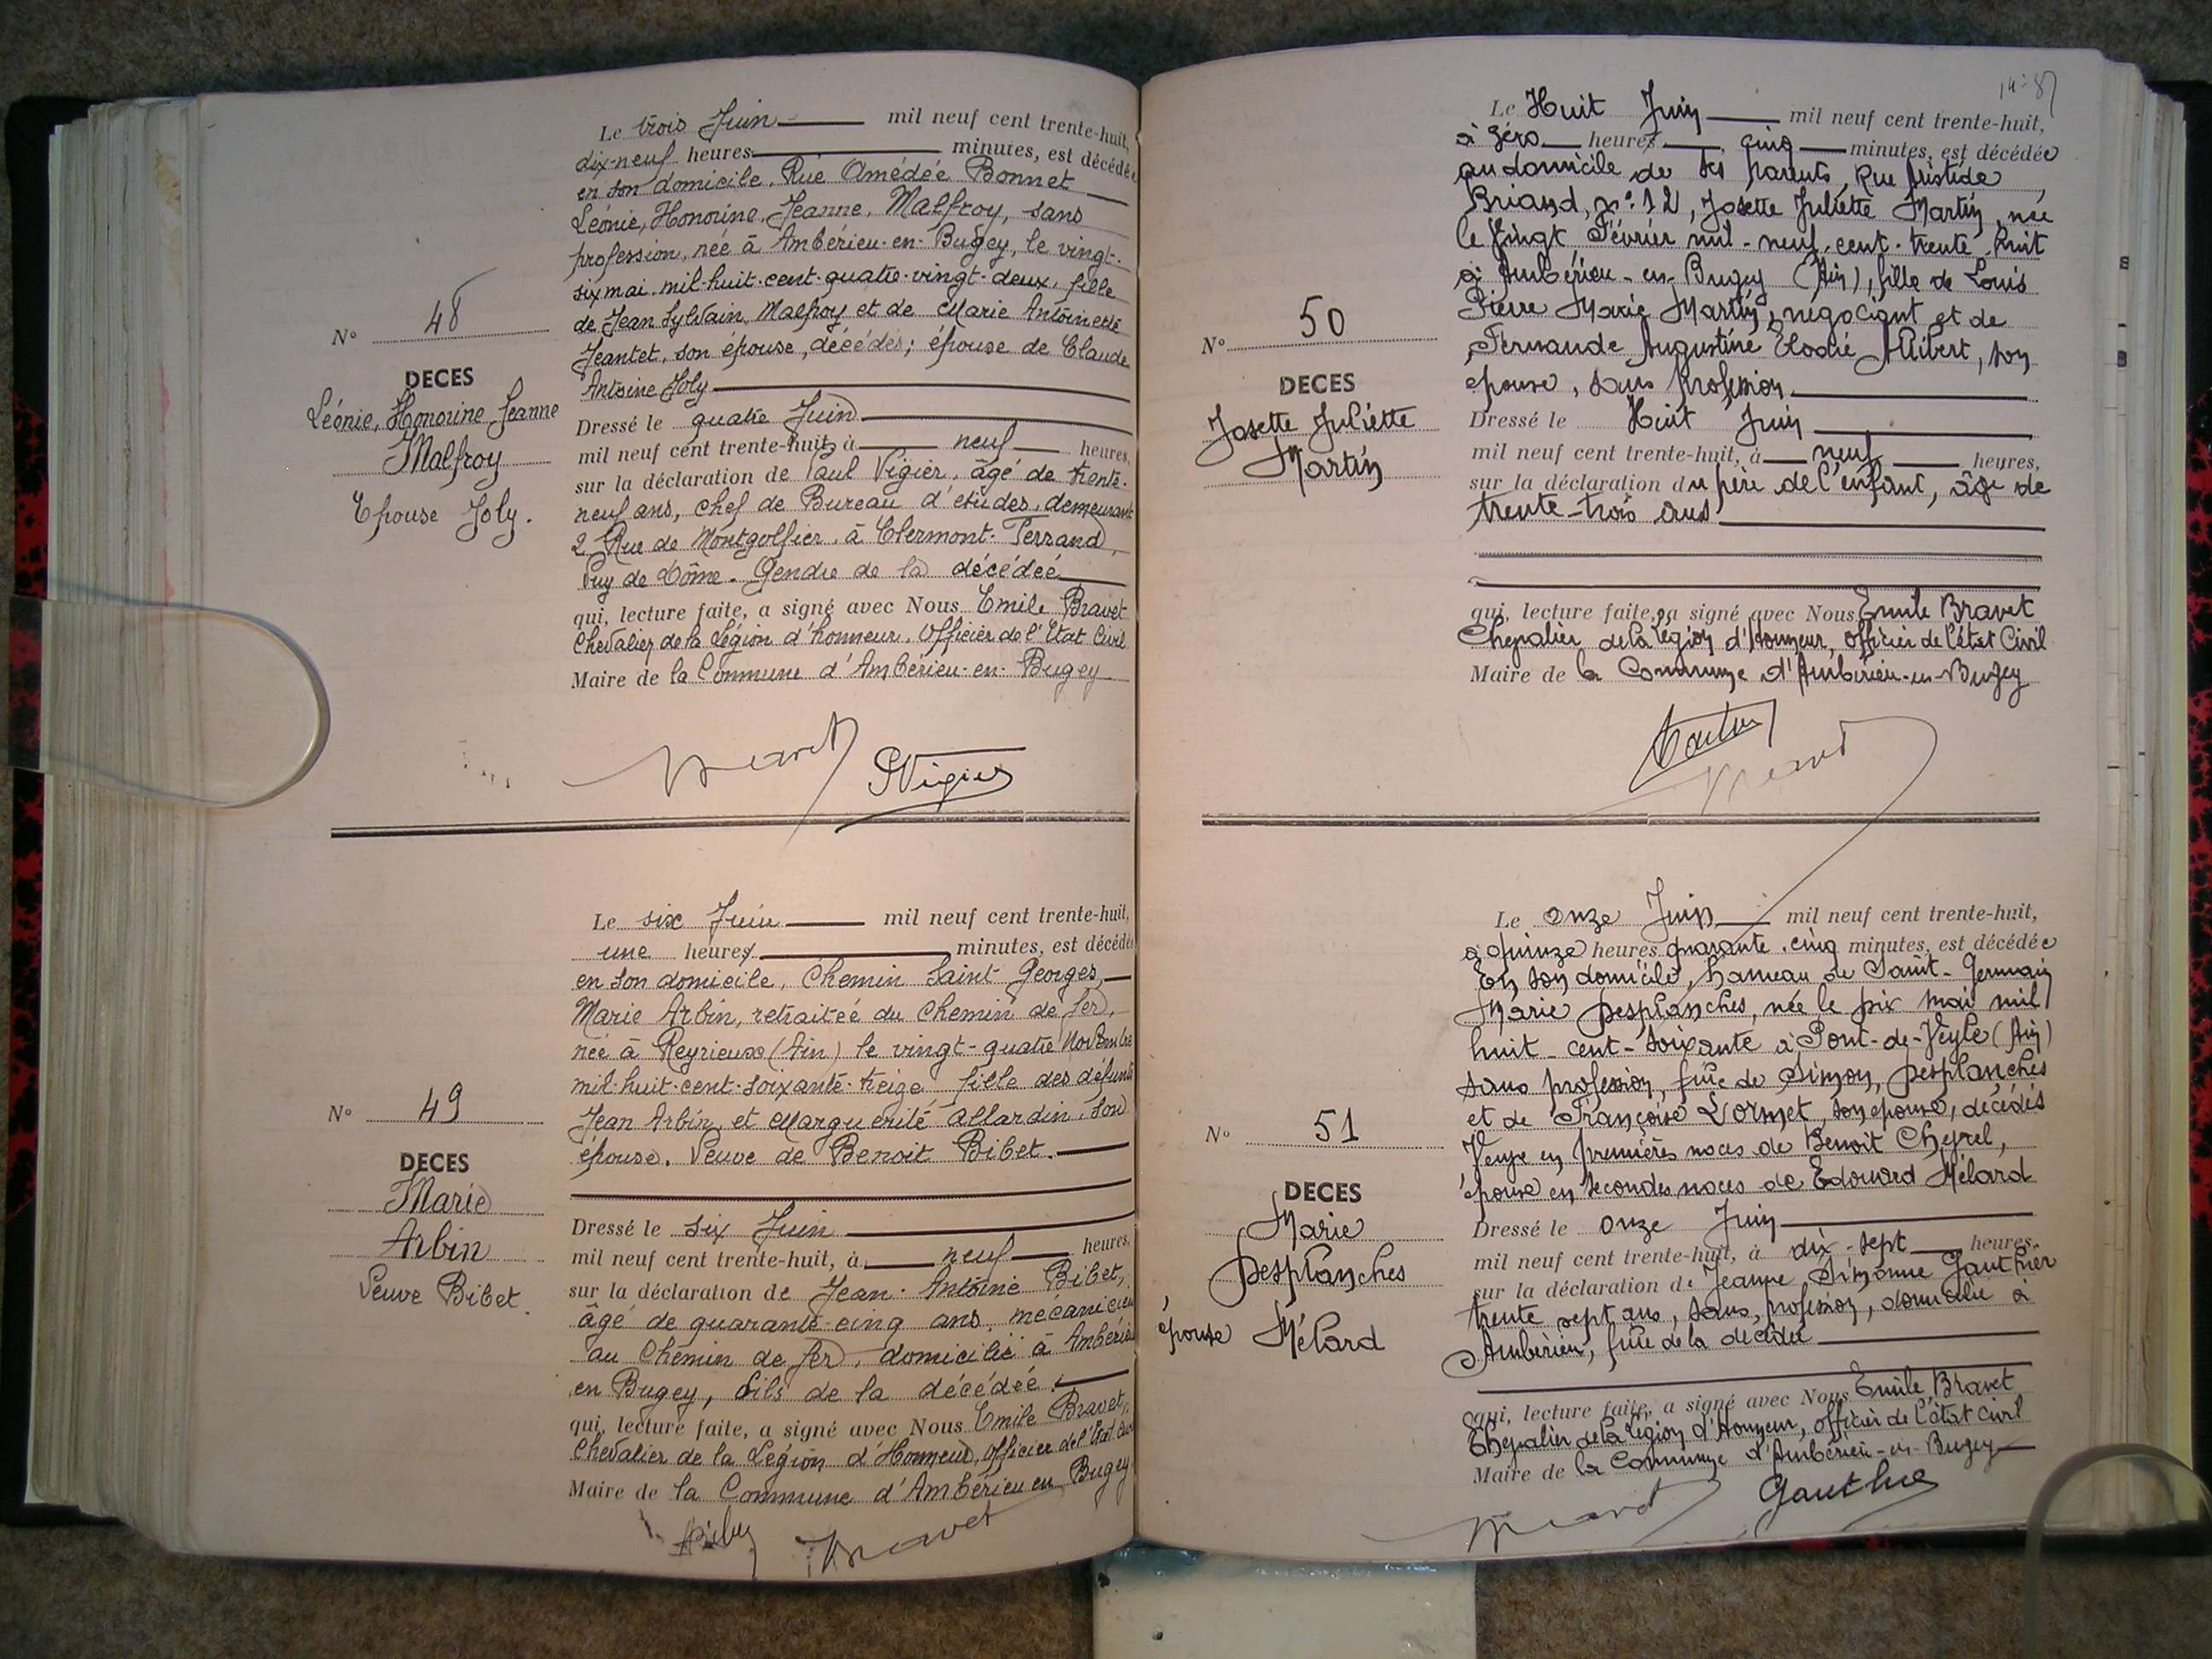 Le trois Juin mil neuf cent trente-huit,
dix-neuf heures minutes, est décédée
en son domicile, Rue Amédée Bonnet
Léonie, Honorine, Jeanne, Malfroy, sans
profession, née à Ambérieu-en-Bugey, le vingt-
six mai mil-huit-cent-quatre-vingt-deux, fille
de Jean Sylvain, Malfroy et de Marie Antoinette
Jeantet, son épouse, décédés; épouse de Claude
Antoine Joly
N° 48
DECES
Léonie, Honorine Jeanne
Malfroy
Epouse Joly.
Dressé le quatre Juin
mil neuf cent trente-huit, à neuf heures,
sur la déclaration de Paul Vigier, âgé de trente-
neuf ans, chef de Bureau d'études, demeurant
2, Rue de Montgolfier, à Clermont-Ferrand,
Puy de Dôme. Gendre de la décédée
qui, lecture faite, a signé avec Nous Emile Bravet
Chevalier de la Légion d'honneur, Officier de l'Etat Civil
Maire de la Commune d'Ambérieu-en-Bugey
Bravet PVigier
Le six Juin mil neuf cent trente-huit,
une heures minutes, est décédée
en son domicile, Chemin Saint Georges,
Marie Arbin, retraitée du Chemin de fer,
née à Reyrieux (Ain) le vingt-quatre Novembre
mil-huit-cent-soixante-treize, fille des défunts
Jean Arbin, et Marguerite Allardin, son
épouse. Veuve de Benoit Bibet.
N° 49
DECES
Marie
Arbin
Veuve Bibet.
Dressé le six Juin
mil neuf cent trente-huit, à neuf heures,
sur la déclaration de Jean-Antoine Bibet,
âgé de quarante-cinq ans, mécanicien
au Chemin de fer, domicilié à Ambérieu
en Bugey, fils de la décédée.
qui, lecture faite, a signé avec Nous Emile Bravet,
Chevalier de la Légion d'Honneur, Officier de l'Etat Civil
Maire de la Commune d'Ambérieu en Bugey
Bibet Bravet
Le Huit Juin mil neuf cent trente-huit,
à zéro heures cinq minutes, est décédée
au domicile de ses parents, Rue Aristide
Briand, n° 12, Josette Juliette Martin, née
le vingt Février mil-neuf-cent-trente-huit
à Ambérieu-en-Bugey (Ain), fille de Louis
Pierre Marie Martin, négociant et de
Fernande Augustine Elodie Alibert, son
épouse, sans profession
N° 50
DECES
Josette Juliette
Martin
Dressé le Huit Juin
mil neuf cent trente-huit, à neuf heures,
sur la déclaration du père de l'enfant, âgé de
trente-trois ans
qui, lecture faite, a signé avec Nous Emile Bravet
Chevalier de la Légion d'Honneur, officier de l'état Civil
Maire de la Commune d'Ambérieu-en-Bugey
Martin Bravet
Le Onze Juin mil neuf cent trente-huit,
à quinze heures quarante-cinq minutes, est décédée
En son domicile, hameau de Saint-Germain
Marie Desplanches, née le six mai mil
huit-cent-soixante à Pont-de-Veyle (Ain)
sans profession, fille de Simon, Desplanches
et de Françoise Vormet, son épouse, décédés
Veuve en premières noces de Benoit Cheyrel,
épouse en secondes noces de Edouard Mélard
N° 51
DECES
Marie
Desplanches
épouse Mélard
Dressé le Onze Juin
mil neuf cent trente-huit, à dix-sept heures,
sur la déclaration de Jeanne Simonne Gauthier
trente sept ans, sans profession, domiciliée à
Ambérieu, fille de la décédée
qui, lecture faite, a signé avec Nous Emile Bravet
Chevalier de la Légion d'Honneur, officier de l'état civil
Maire de la Commune d'Ambérieu-en-Bugey
Bravet Gauthier